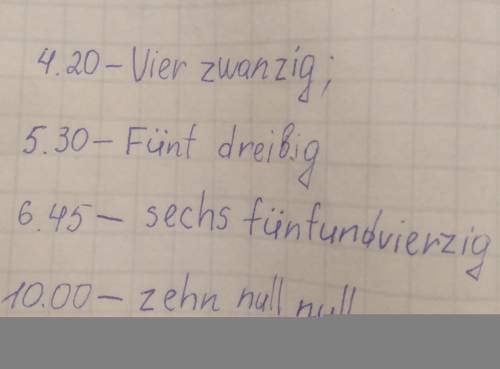 4.20 – Vier zwanzig;
5.30 – Fünt dreißig
6.45 – sechs fünfundvierzig
10.00 – zehn null null